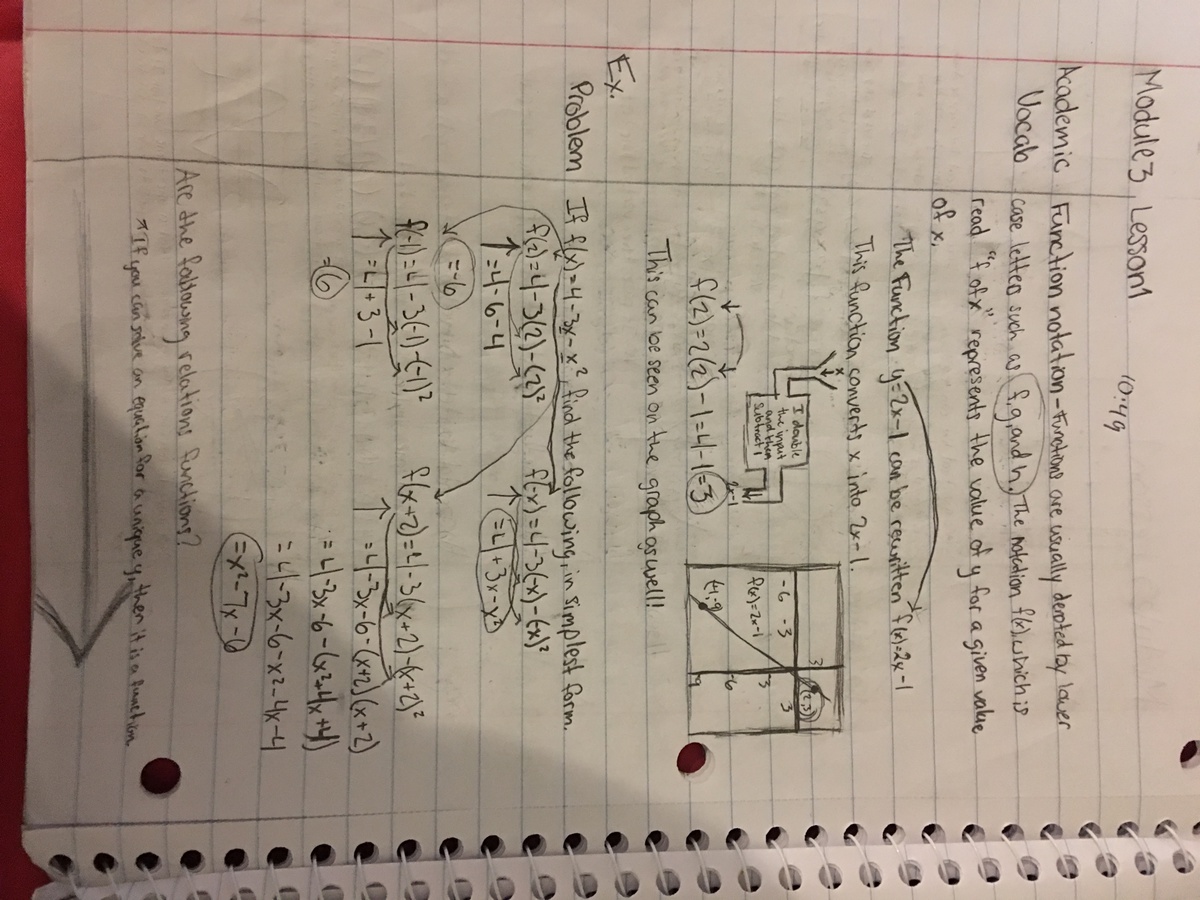 Module 3, Lesson 1
10:49
Academic
Vocab
Function notation - Functions are usually denoted by lower
case letters such as f, g, and h. The notation f(x), which is
read "f of x" represents the value of y for a given value
of x.
The function y=2x-1 can be rewritten f(x)=2x-1
This function converts x into 2x-1.
x
I double
the input
and then
subtract 1
2x-1
f(2)=2(2)-1=4-1=3
3
(2,3)
-6 -3 3
f(x)=2x-1
-3
-6
-9
(-4,-9)
This can be seen on the graph as well!
Ex.
Problem
If f(x)=4-3x-x², find the following, in simplest form.
f(2)=4-3(2)-(2)²
=4-6-4
=-6
f(-x)=4-3(-x)-(-x)²
=4+3x-x²
f(-1)=4-3(-1)-(-1)²
=4+3-1
=6
f(x+2)=4-3(x+2)-(x+2)²
=4-3x-6-(x+2)(x+2)
=4-3x-6-(x²+4x+4)
=4-3x-6-x²-4x-4
=-x²-7x-6
Are the following relations functions?
↗If you can solve an equation for a unique y, then it is a function.